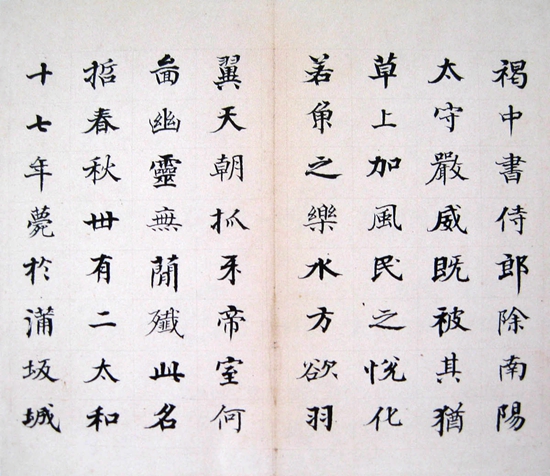 褐中書侍郎除南陽
太守嚴威既被其猶
草上加風民之悅化
若魚之樂水方欲羽
翼天朝抓牙帝室何
啚幽靈無蕳殲此名
哲春秋卅有二太和
十七年薨於蒲坂城